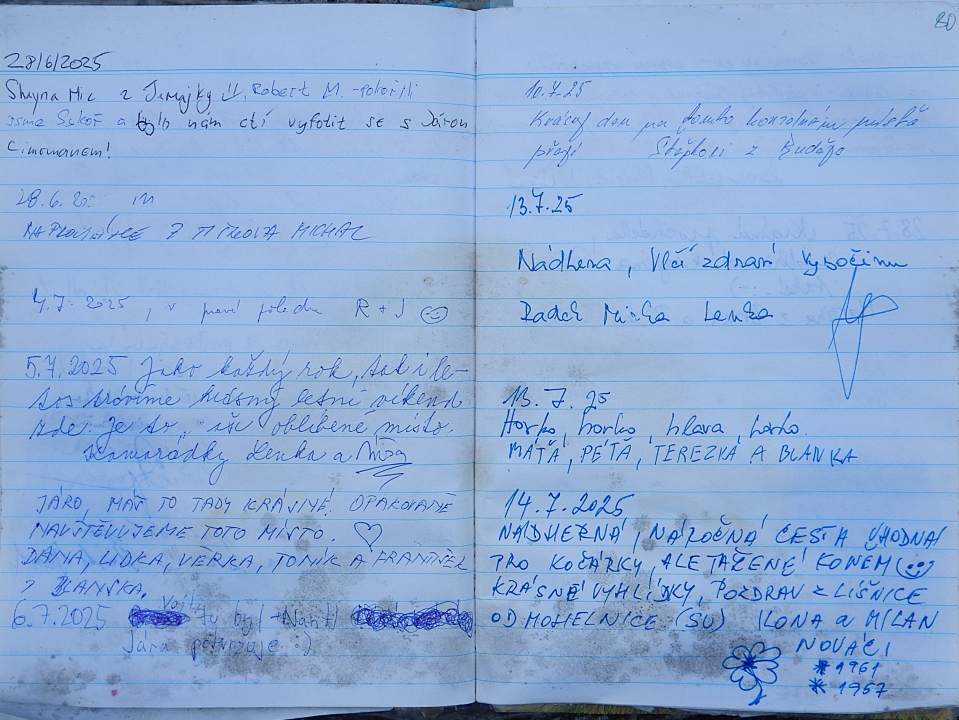 28/6/2025
Shayna Mic z Jamajky !!, Robert M. - pokořili
jsme Sykoř a bylo nám ctí vyfotit se s Járou
Cimrmanem!
28.6. 20
NA PROCHÁZCE Z MICHAL
4.7. 2025, v pravé poledne R + J ☺
5.7.2025 Jako každý rok, tak i le-
tos trávíme krásný letní víkend
zde. Je to naše oblíbené místo.
Kamarádky Lenka a
JÁRO, MÁŠ TO TADY KRÁSNÉ. OPAKOVANĚ
NAVŠTĚVUJEME TOTO MÍSTO. ♡
DÁŇA, LIDKA, VĚRKA, TONÍK A FRANTIŠEK
Z BLANSKA.
6.7.2025 Vojta tu byl
Jára potvrzuje :)
80
10.7.25
Krásný den na
přejí z
13.7.25
Nádhera, Vlčí zdraví Vysočinu
Radek Mirka Lenka
13.7.25
Horko, horko, hlava, horko.
MÁŤA, PÉŤA, TEREZKA A BLANKA
14.7.2025
NÁDHERNÁ, NÁROČNÁ CESTA VHODNÁ
PRO KOČÁRKY, ALE TAŽENÉ KONĚM ☺
KRÁSNÉ VYHLÍDKY, POZDRAV Z LÍŠNICE
OD MOHELNICE (SU) ILONA a MILAN
NOVÁCI
* 1961
* 1957